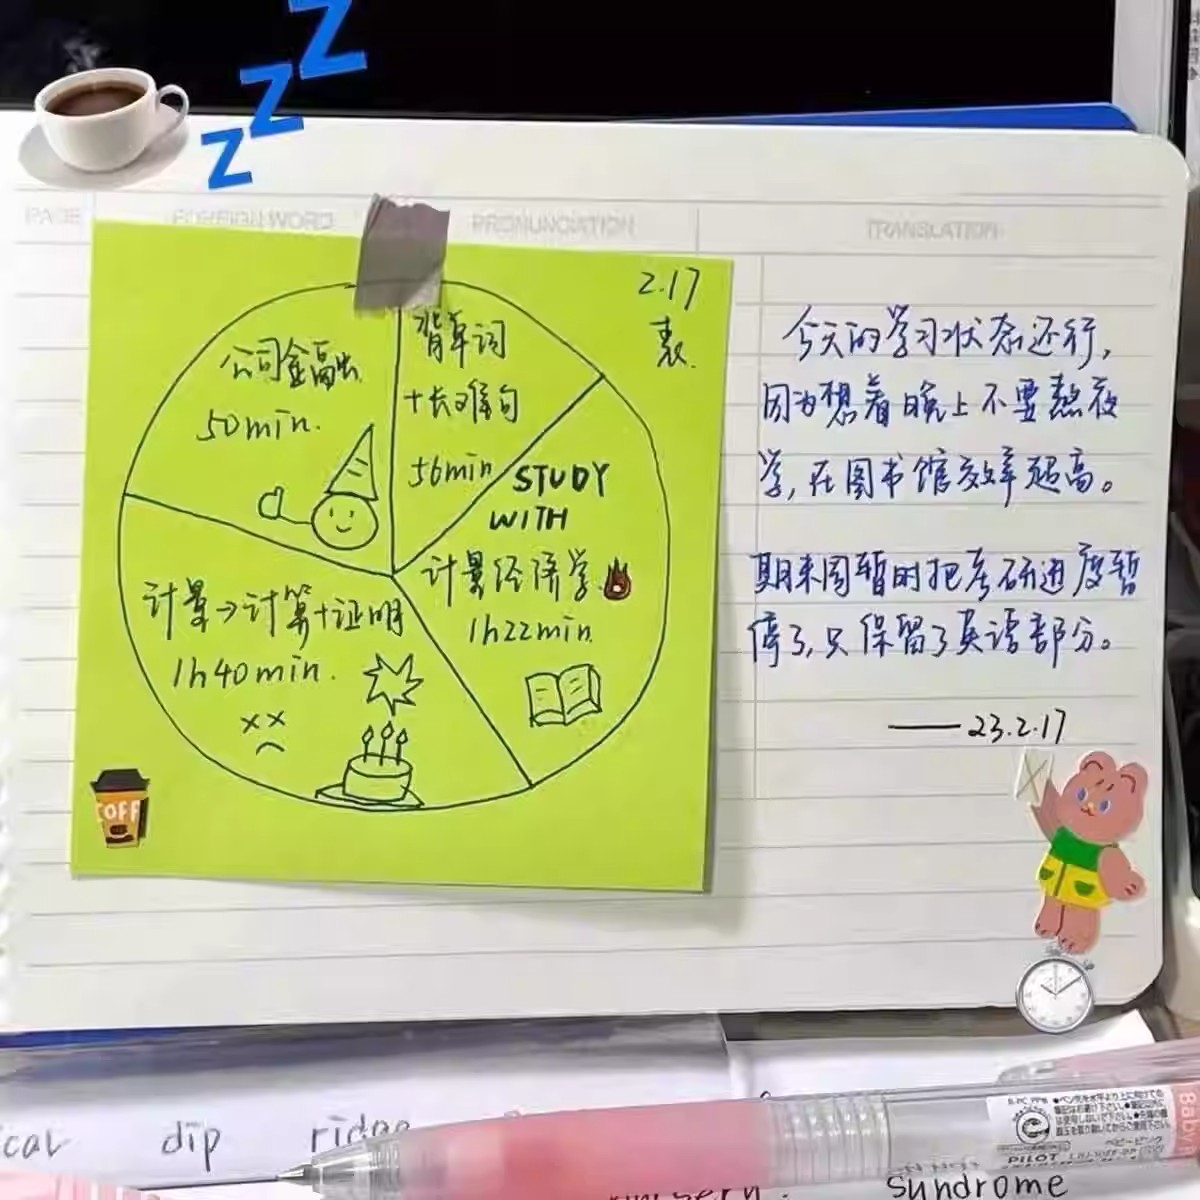 PAGE FOREIGN WORD PRONUNCIATION TRANSLATION
2.17
表.
公司金融
50min.
背单词
+长难句
56min
STUDY
WITH
计量经济学
1h22min.
计量→计算+证明
1h40min.
COFF
今天的学习状态还行,
因为想着晚上不要熬夜
学,在图书馆效率超高。
期末周暂时把考研进度暂
停了,只保留了英语部分。
——23.2.17
cal dip ridge
PILOT
Baby
syndrome